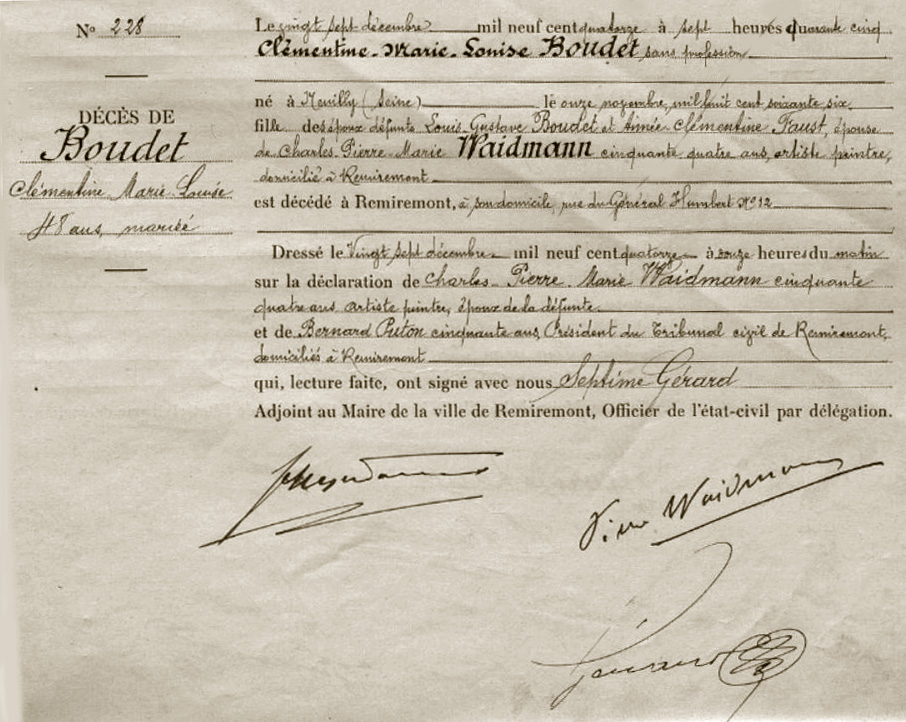 N° 228
DÉCÈS DE
Boudet
Clémentine Marie Louise
48 ans, mariée
Le vingt sept décembre mil neuf cent quatorze à sept heures quarante cinq
Clémentine-Marie-Louise Boudet sans profession
né à Neuilly (Seine) le onze novembre, mil huit cent soixante six
fille des époux défunts Louis-Gustave Boudet et Aimée-Clémentine Faust, épouse
de Charles-Pierre-Marie Waidmann cinquante quatre ans, artiste peintre,
domicilié à Remiremont
est décédé à Remiremont, à son domicile, rue du Général Humbert N° 12
Dressé le Vingt sept décembre mil neuf cent quatorze à onze heures du matin
sur la déclaration de Charles-Pierre-Marie Waidmann cinquante
quatre ans, artiste peintre, époux de la défunte
et de Bernard Puton cinquante ans, Président du Tribunal civil de Remiremont,
domiciliés à Remiremont
qui, lecture faite, ont signé avec nous Septime Gérard
Adjoint au Maire de la ville de Remiremont, Officier de l'état-civil par délégation.
Waidmann